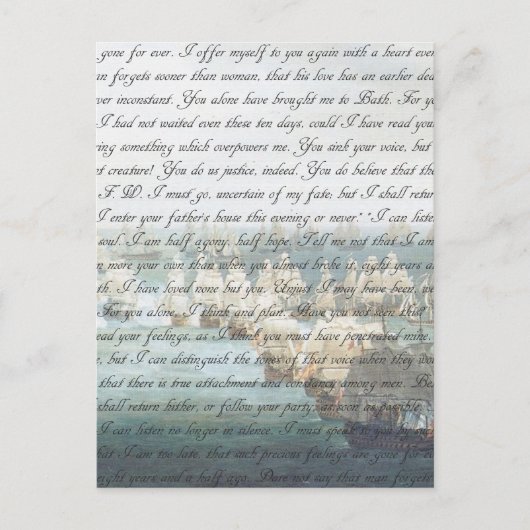 gone for ever. I offer myself to you again with a heart even
an forgets sooner than woman, that his love has an earlier dea
ver inconstant. You alone have brought me to Bath. For yo
I had not waited even these ten days, could I have read your
ring something which overpowers me. You sink your voice, but
nt creature! You do us justice, indeed. You do believe that the
F. W. I must go, uncertain of my fate; but I shall return
I enter your father's house this evening or never." "I can liste
soul. I am half agony, half hope. Tell me not that I am
n more your own than when you almost broke it, eight years a
h. I have loved none but you. Unjust I may have been, we
For you alone, I think and plan. Have you not seen this?
ead your feelings, as I think you must have penetrated mine.
e, but I can distinguish the tones of that voice when they wo
that there is true attachment and constancy among men. Be
shall return hither, or follow your party, as soon as possible.
I can listen no longer in silence. I must speak to you by suc
hat I am too late, that such precious feelings are gone for e
eight years and a half ago. Dare not say that man forgets